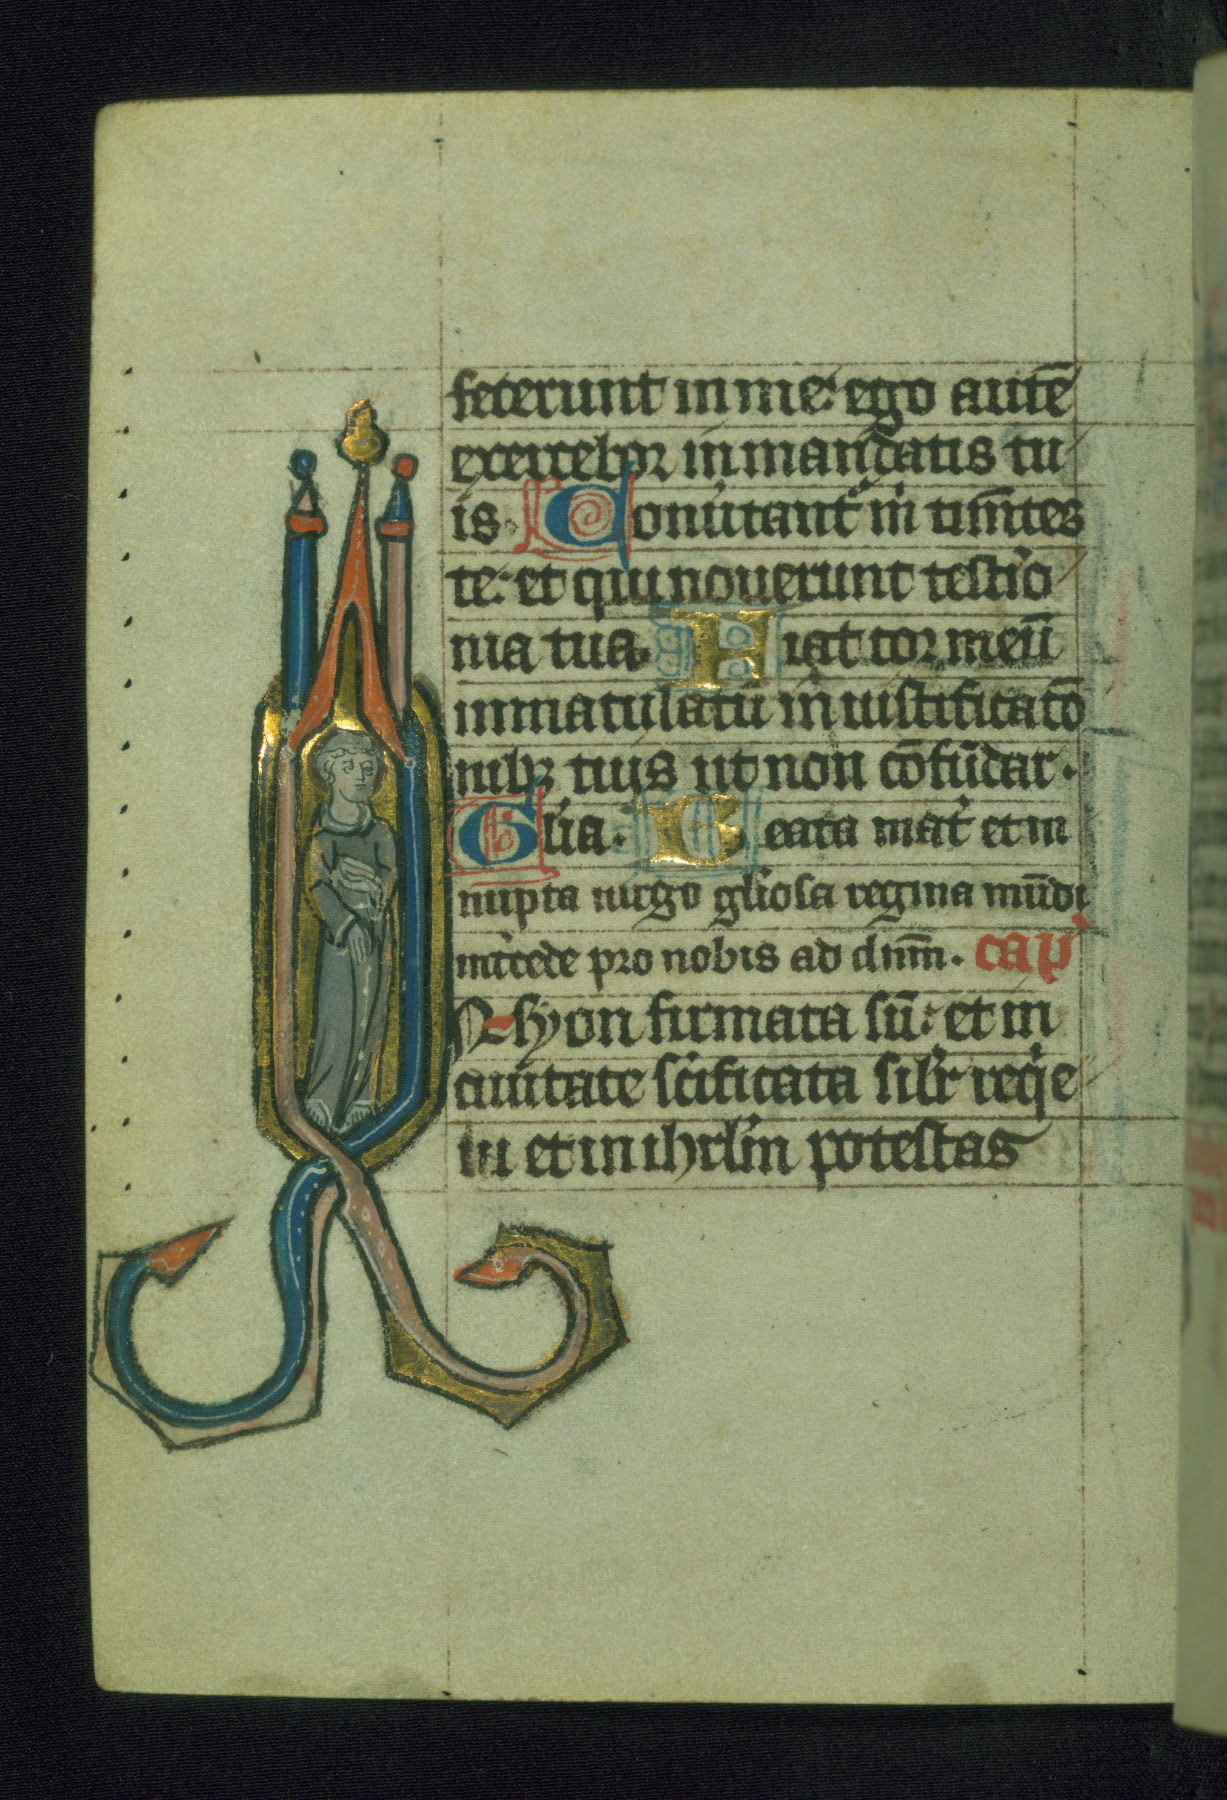 fecerunt in me: ego autē
exercebor in mandatis tu
is. Conūtant' m̄ tim̄tes
te: et qui nouerunt testi'o
nia tua. Fiat cor meū
inmaculatū in iustificatō
nibꝫ tuis ut non cōfūdar.
Gl'ia. Beata mat' et in
nupta uirgo gl'iosa regina mūdi
int'cede pro nobis ad dn̄m. cap'
In syon firmata sū: et in
ciuitate sc̄ificata silr' req'e
ui et in ihrl̄m potestas